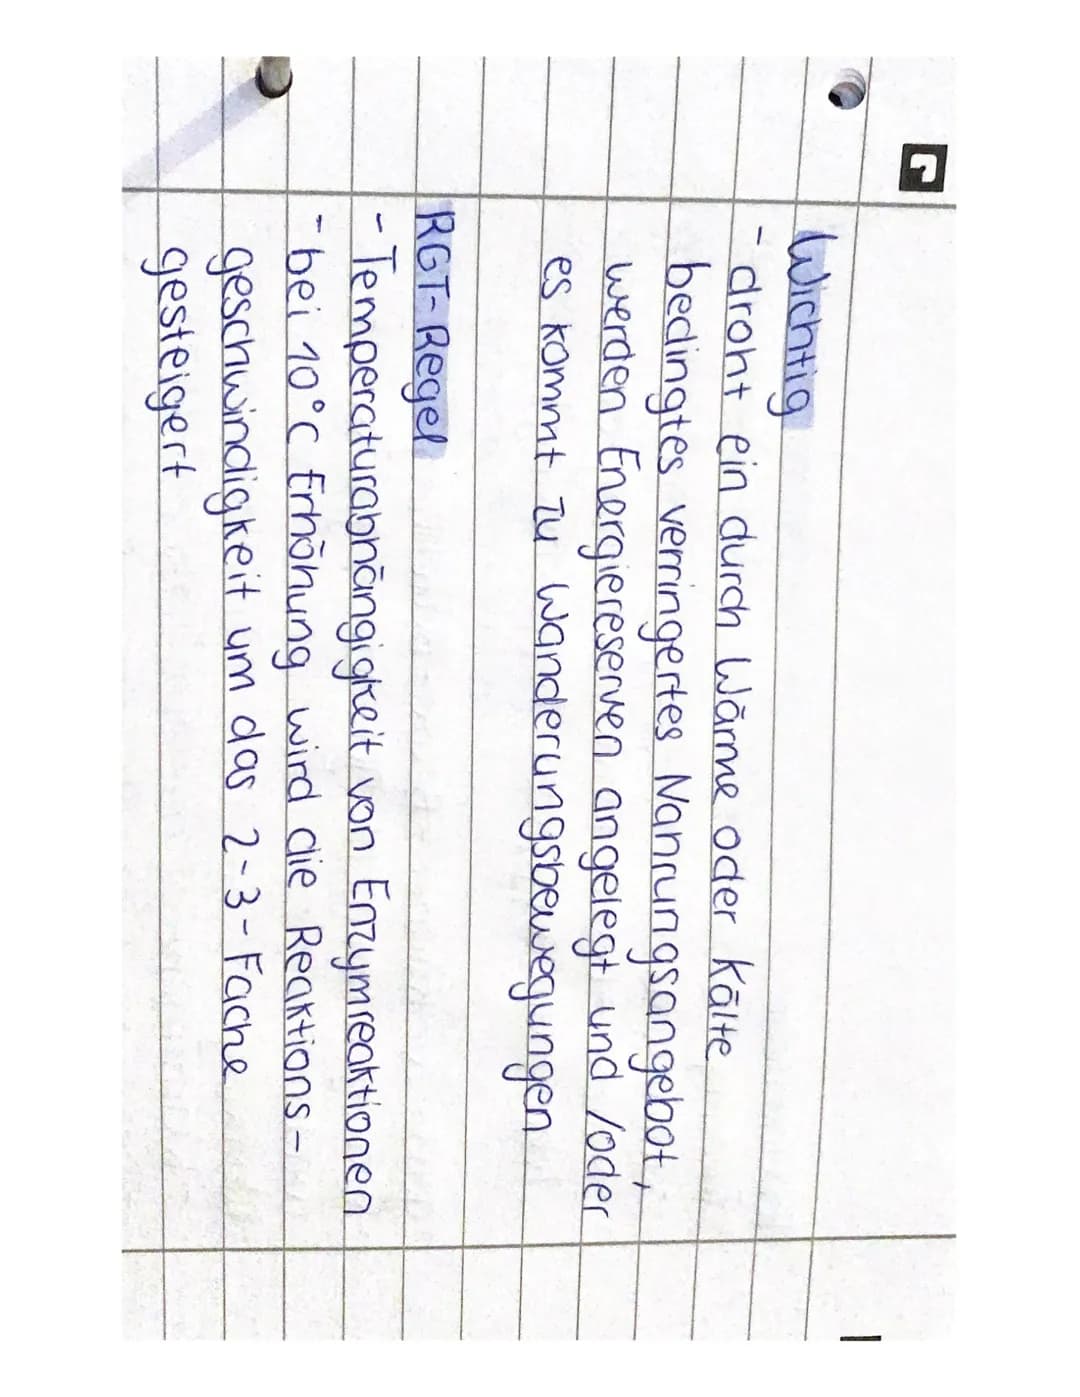 Wichtig
- droht ein durch Wärme oder Kälte
bedingtes verringertes Nahrungsangebot,
werden Energiereserven angelegt und /oder
es kommt zu Wanderungsbewegungen
RGT-Regel
- Temperaturabhängigkeit von Enzymreaktionen
- bei 10°C Erhöhung wird die Reaktions-
geschwindigkeit um das 2-3-Fache
gesteigert